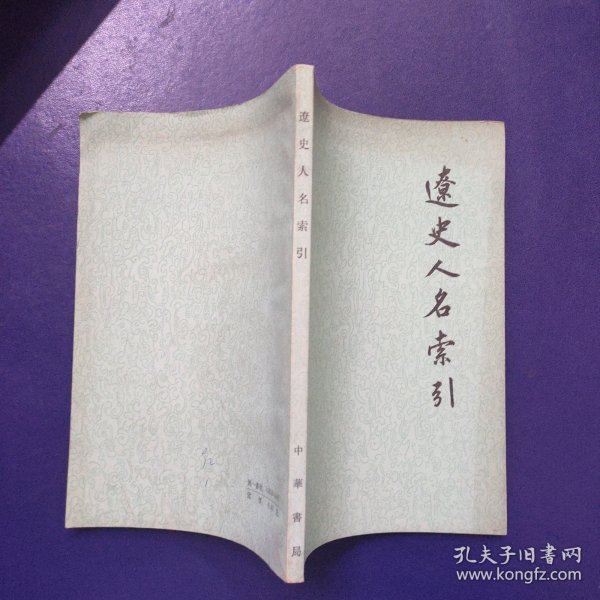 遼史人名索引
遼史人名索引
中華書局
孔夫子旧书网
www.kongfz.com